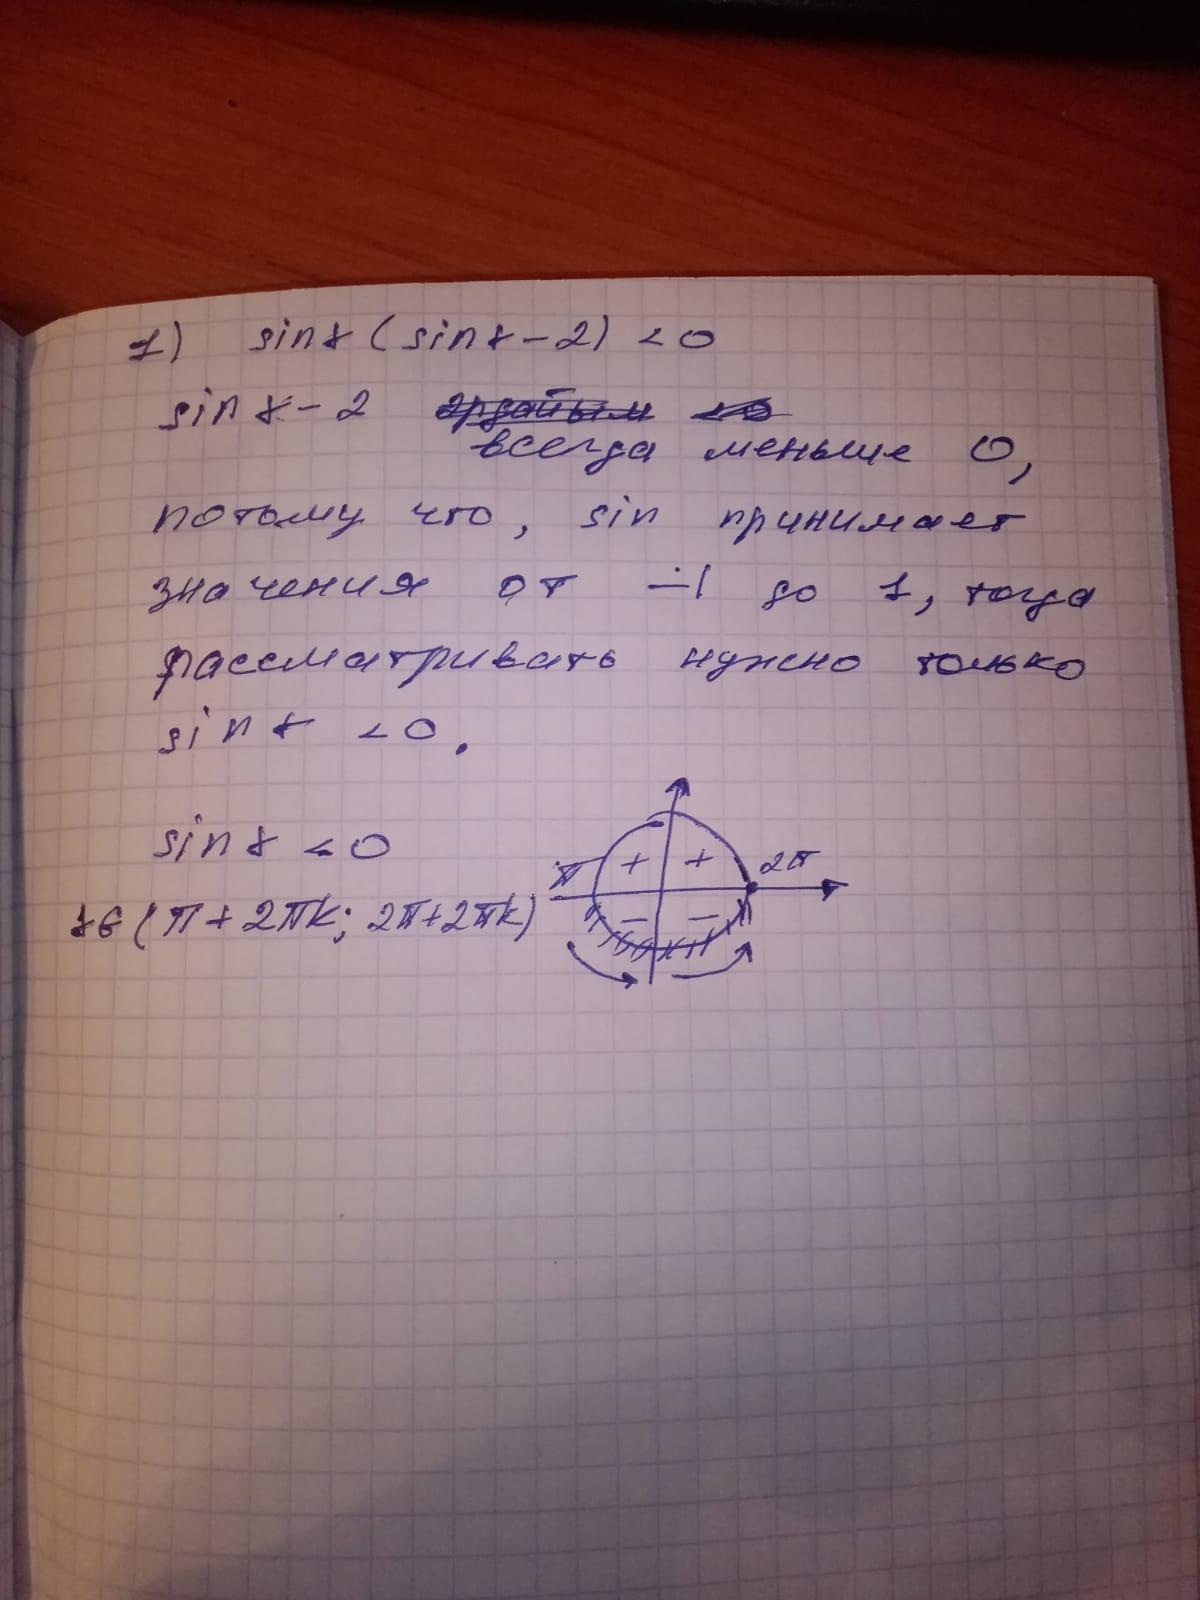 1) sin x (sin x - 2) < 0
sin x - 2
всегда меньше 0,
потому что, sin принимает
значения от -1 до 1, тогда
рассматривать нужно только
sin x < 0.
sin x < 0
x ∈ (π + 2πk; 2π + 2πk)
π + + 2π
- -